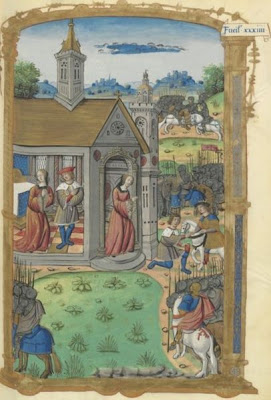 Fueil xxxiiii